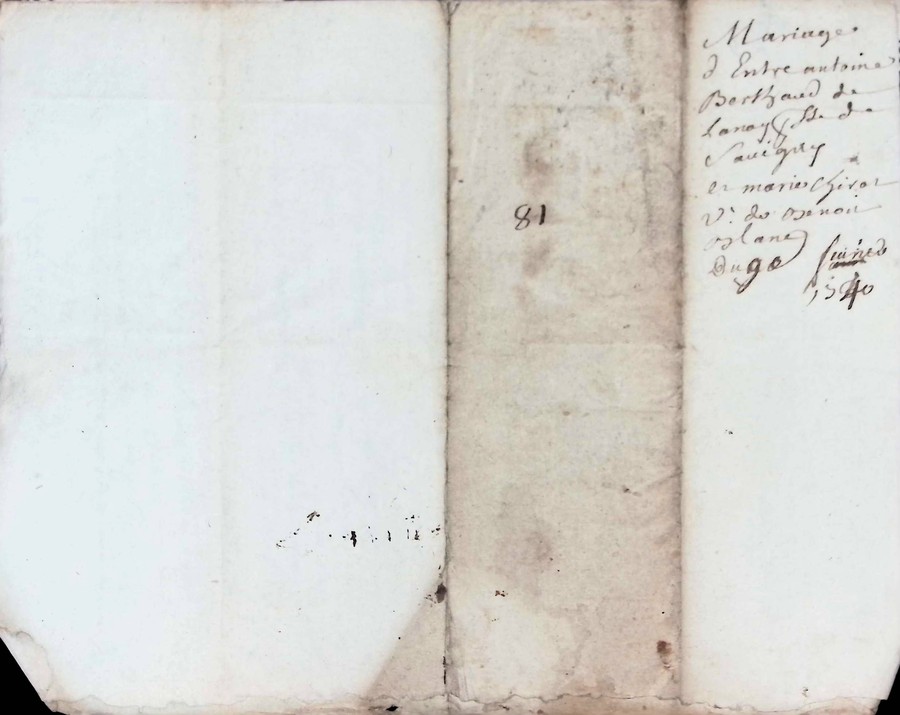 81
Mariage
d Entre antoine
Berthaud de
Lanay de
Sauigny
et marie Chirat
Vᵉ de Benoit
Blanc
Du 9e Juined
1540